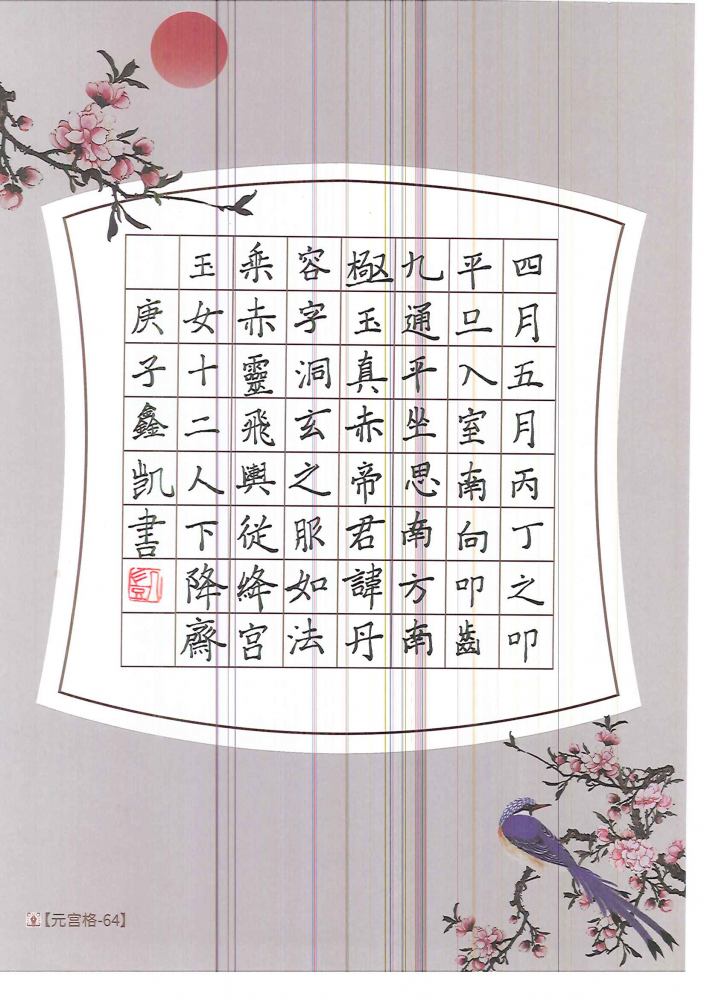 四月五月丙丁之叩
平旦入室南向叩齒
九通平坐思南方南
極玉真赤帝君諱丹
容字洞玄之服如法
乘赤靈飛輿從絳宮
玉女十二人下降齋
庚子鑫凱書
凱
【元宮格-64】